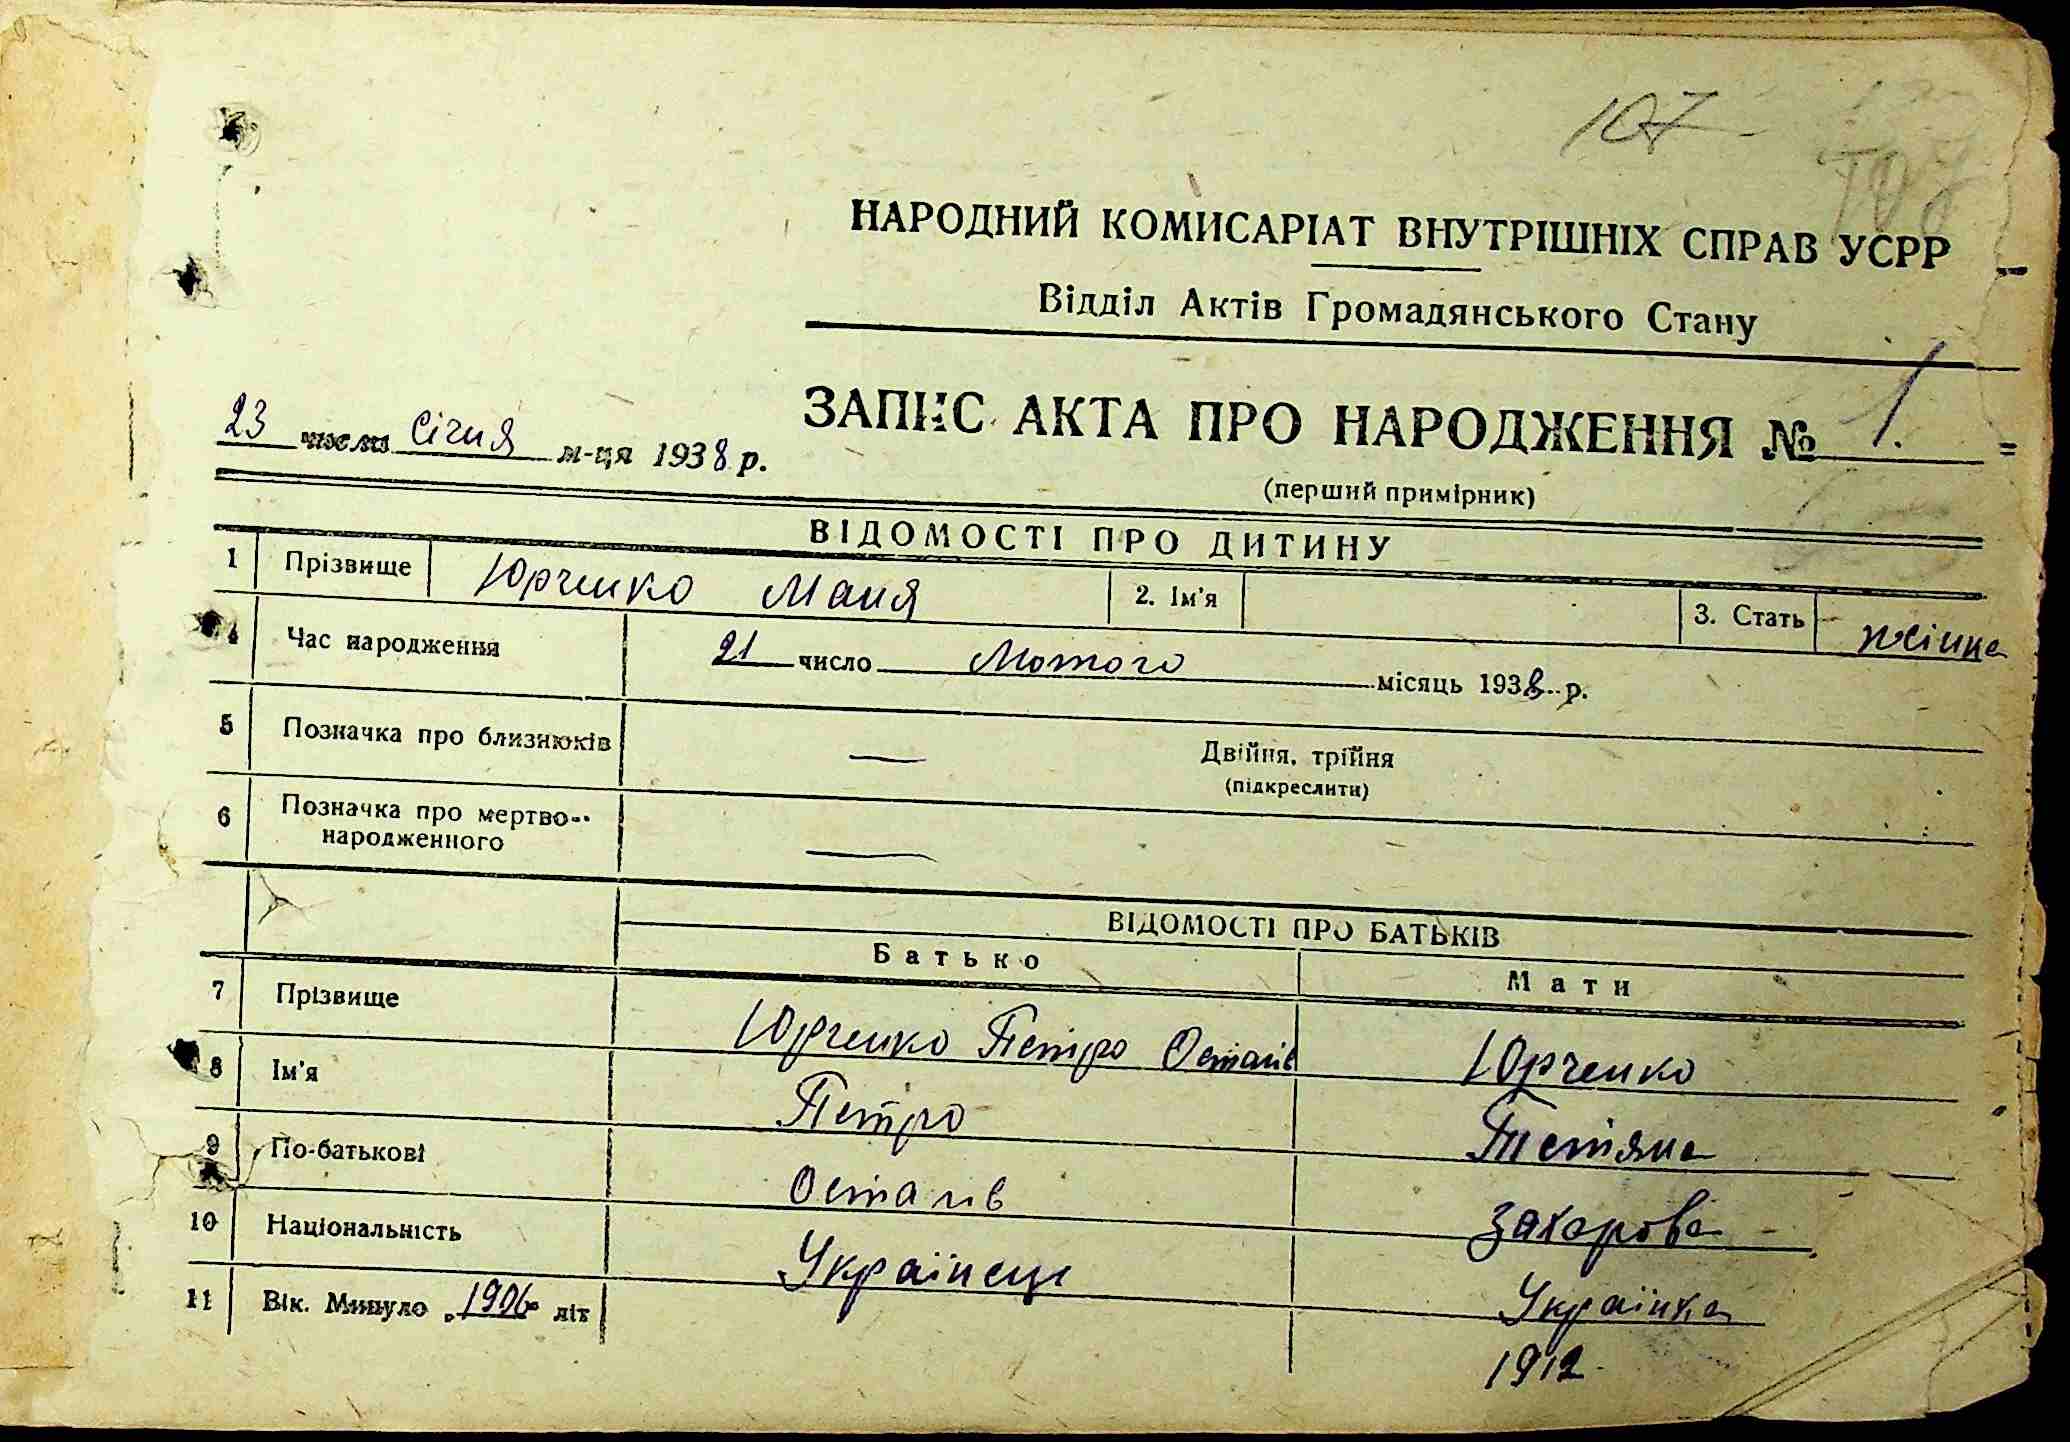 107
НАРОДНИЙ КОМИСАРІАТ ВНУТРІШНІХ СПРАВ УСРР
Відділ Актів Громадянського Стану
ЗАПИС АКТА ПРО НАРОДЖЕННЯ № 1.
23 числа січня м-ця 1938 р.
(перший примірник)
ВІДОМОСТІ ПРО ДИТИНУ
1 Прізвище Юрченко Маня 2. Ім'я 3. Стать жінка
4 Час народження 21 число Лютого місяць 1938 р.
5 Позначка про близнюків — Двійня, трійня
(підкреслити)
6 Позначка про мертво-
народженного —
ВІДОМОСТІ ПРО БАТЬКІВ
Батько Мати
7 Прізвище Юрченко Петро Остапів Юрченко
8 Ім'я Петро Тетяна
9 По-батькові Остапів Захарова
10 Національність Українець Українка
11 Вік. Минуло „1906" літ 1912